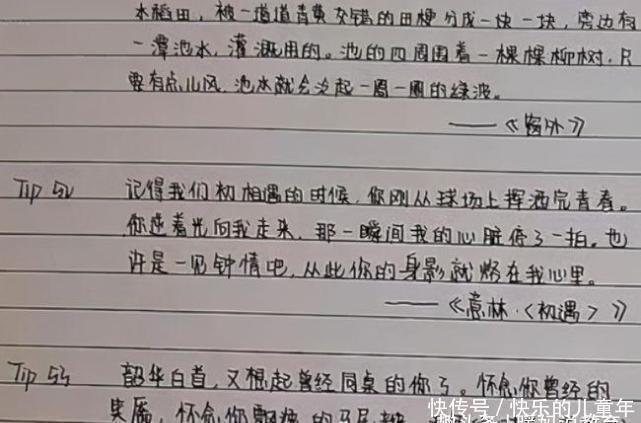 水稻田，被一道道青黄交错的田梗分成一块一块，旁边有
一潭池水，灌溉用的。池的四周围着一棵棵柳树，只
要有点儿风，池水就会泛起一圈一圈的绿波。
——《窗外》
Tip 52 记得我们初相遇的时候，你刚从球场上挥洒完青春。
你逆着光向我走来，那一瞬间我的心脏停了一拍。也
许是一见钟情吧，从此你的身影就烙在我心里。
——《意林·〈初遇〉》
Tip 53 韶华白首，又想起曾经同桌的你了。怀念你曾经的
笑靥，怀念你飘扬的马尾辫
快传号／快乐的儿童年